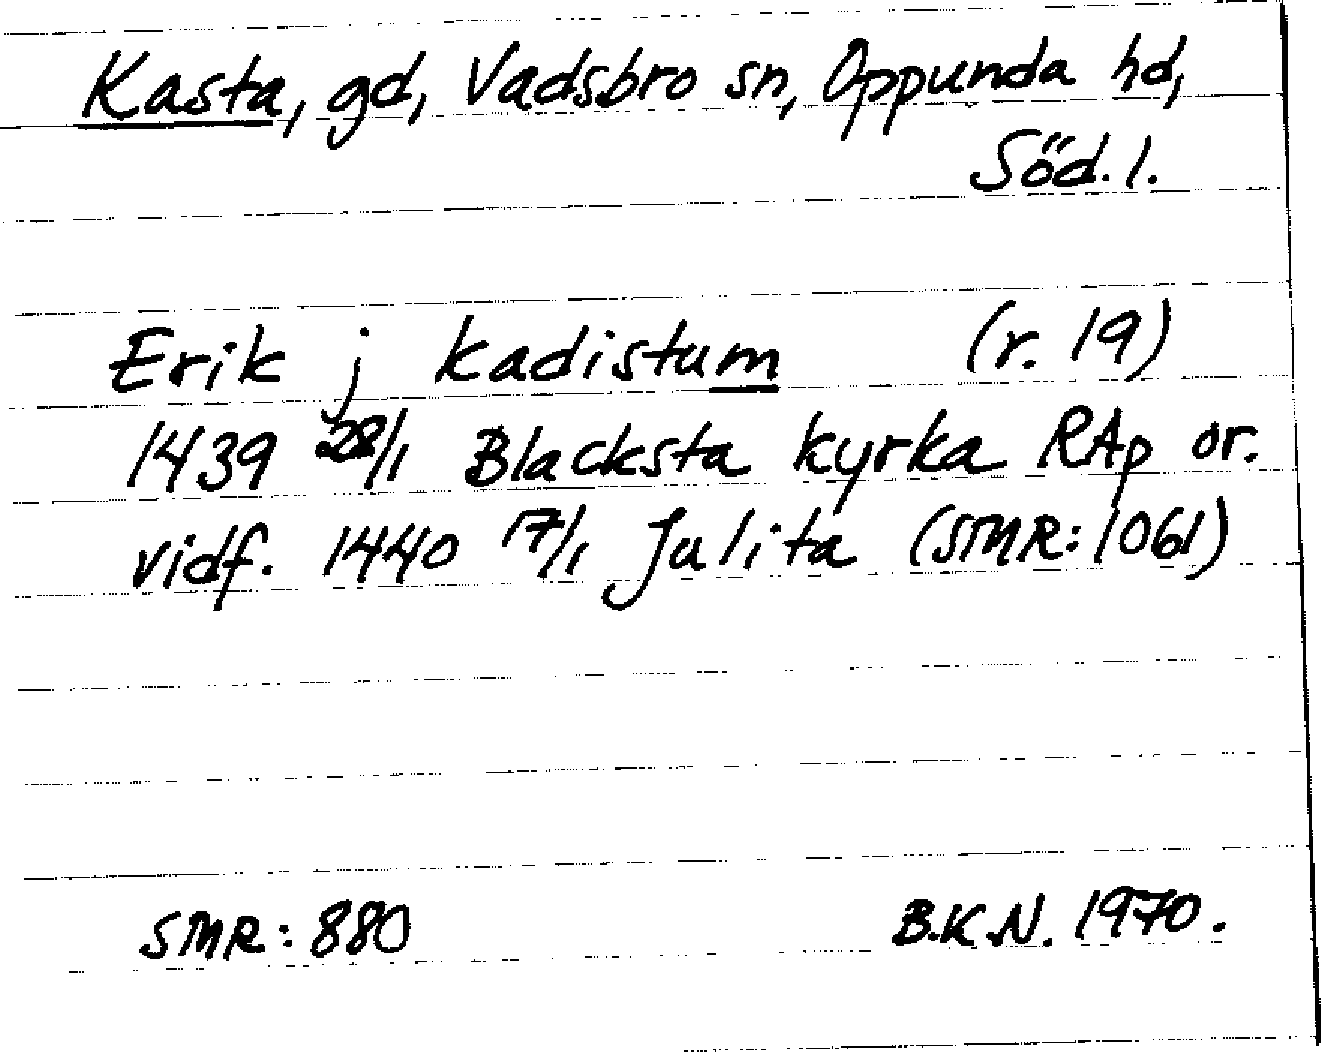 Kasta, gd, Vadsbro sn, Oppunda hd,
Söd. l.
Erik j kadistum (r. 19)
1439 28/1 Blacksta kyrka RAp or.
vidf. 1440 17/1 Julita (SMR: 1061)
SMR: 880 B.K.N. 1970.